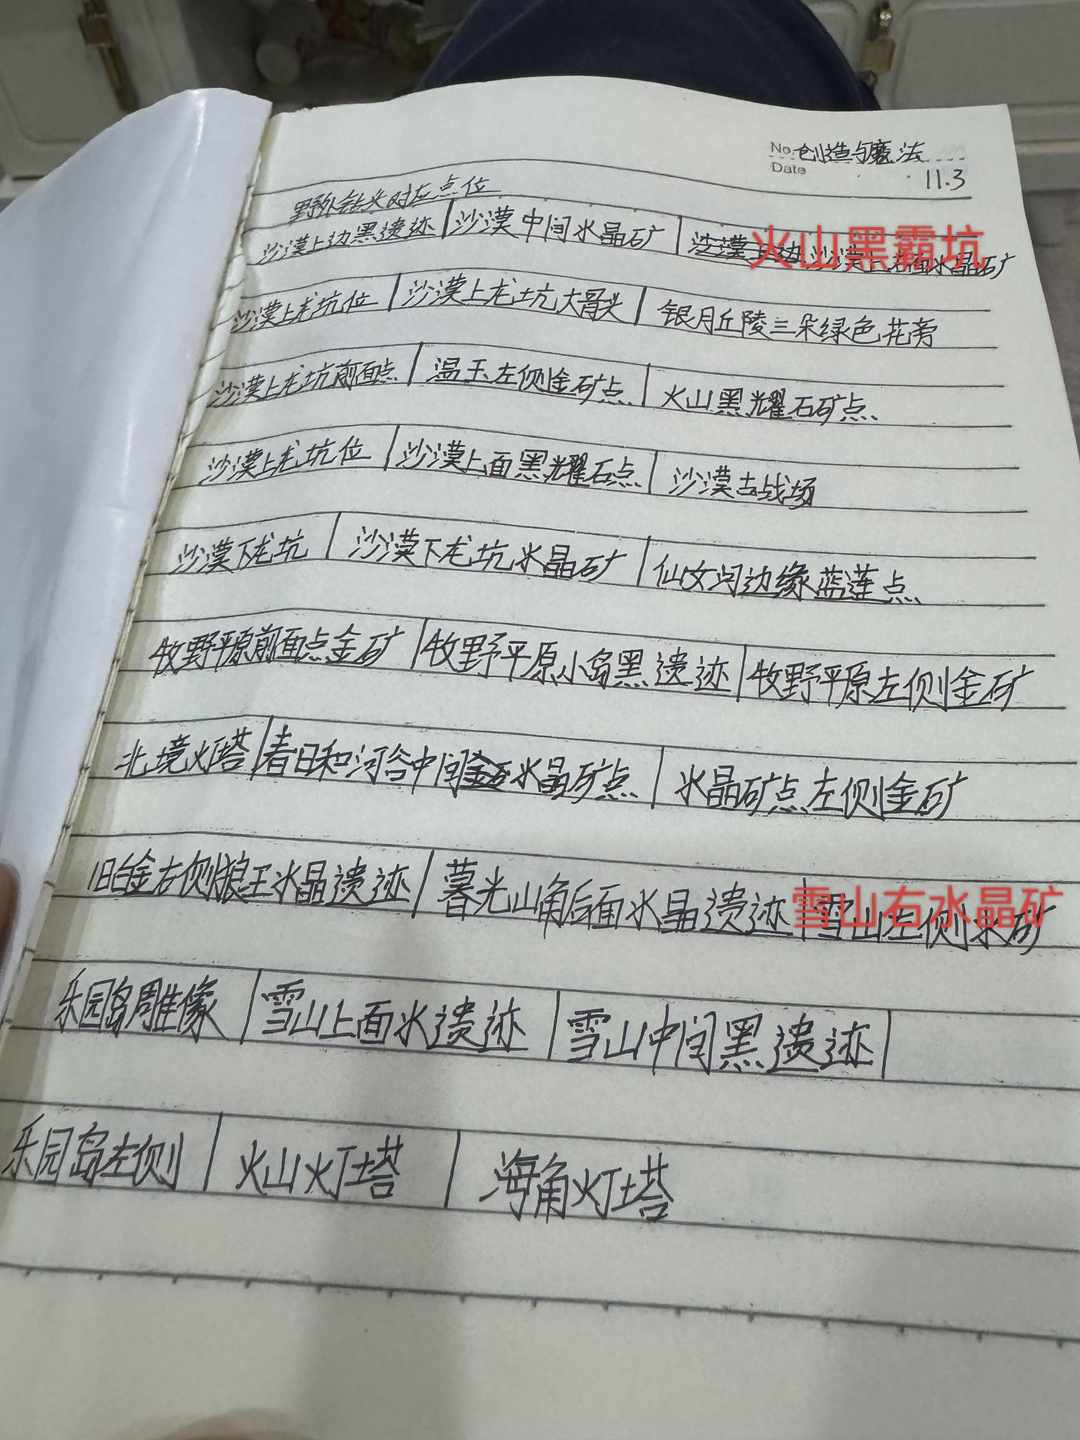 No. 创造与魔法
Date 11.3
野外钻头对应点位
沙漠上边黑遗迹 | 沙漠中间水晶矿 | 沙漠 边 沙漠 右面水晶矿
火山黑霸坑
沙漠上龙坑位 | 沙漠上龙坑大骨头 | 银月丘陵三朵绿色花旁
沙漠上龙坑前面点 | 温玉左侧金矿点 | 火山黑耀石矿点
沙漠上龙坑位 | 沙漠上面黑耀石点 | 沙漠古战场
沙漠下龙坑 | 沙漠下龙坑水晶矿 | 仙女河边缘蓝莲点
牧野平原前面点金矿 | 牧野平原小岛黑遗迹 | 牧野平原左侧金矿
北境灯塔 | 春日和河谷中间 水晶矿点 | 水晶矿点左侧金矿
旧白金右侧狼王水晶遗迹 | 暮光山角后面水晶遗迹 | 雪山左侧水矿
雪山右水晶矿
乐园岛雕像 | 雪山上面水遗迹 | 雪山中间黑遗迹 |
乐园岛左侧 | 火山灯塔 | 海角灯塔